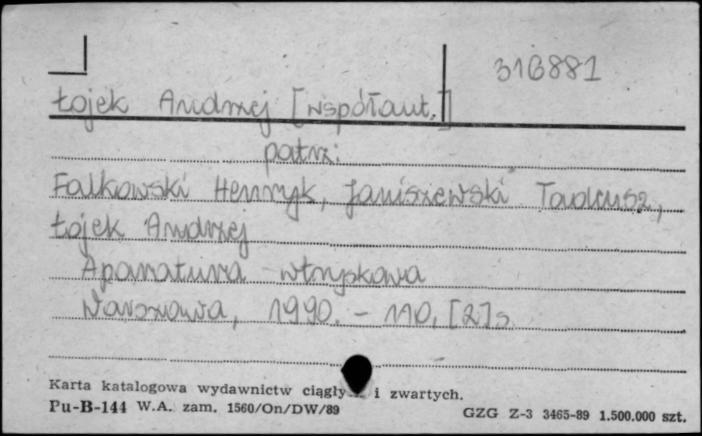 316881
Łojek Andrzej [współaut.]
patrz:
Falkowski Henryk, Janiszewski Tadeusz,
Łojek Andrzej
Aparatura wtryskowa
Warszawa, 1990. - 110, [2] s.
Karta katalogowa wydawnictw ciągły i zwartych.
Pu-B-144 W.A. zam. 1560/On/DW/89
GZG Z-3 3465-89 1.500.000 szt.